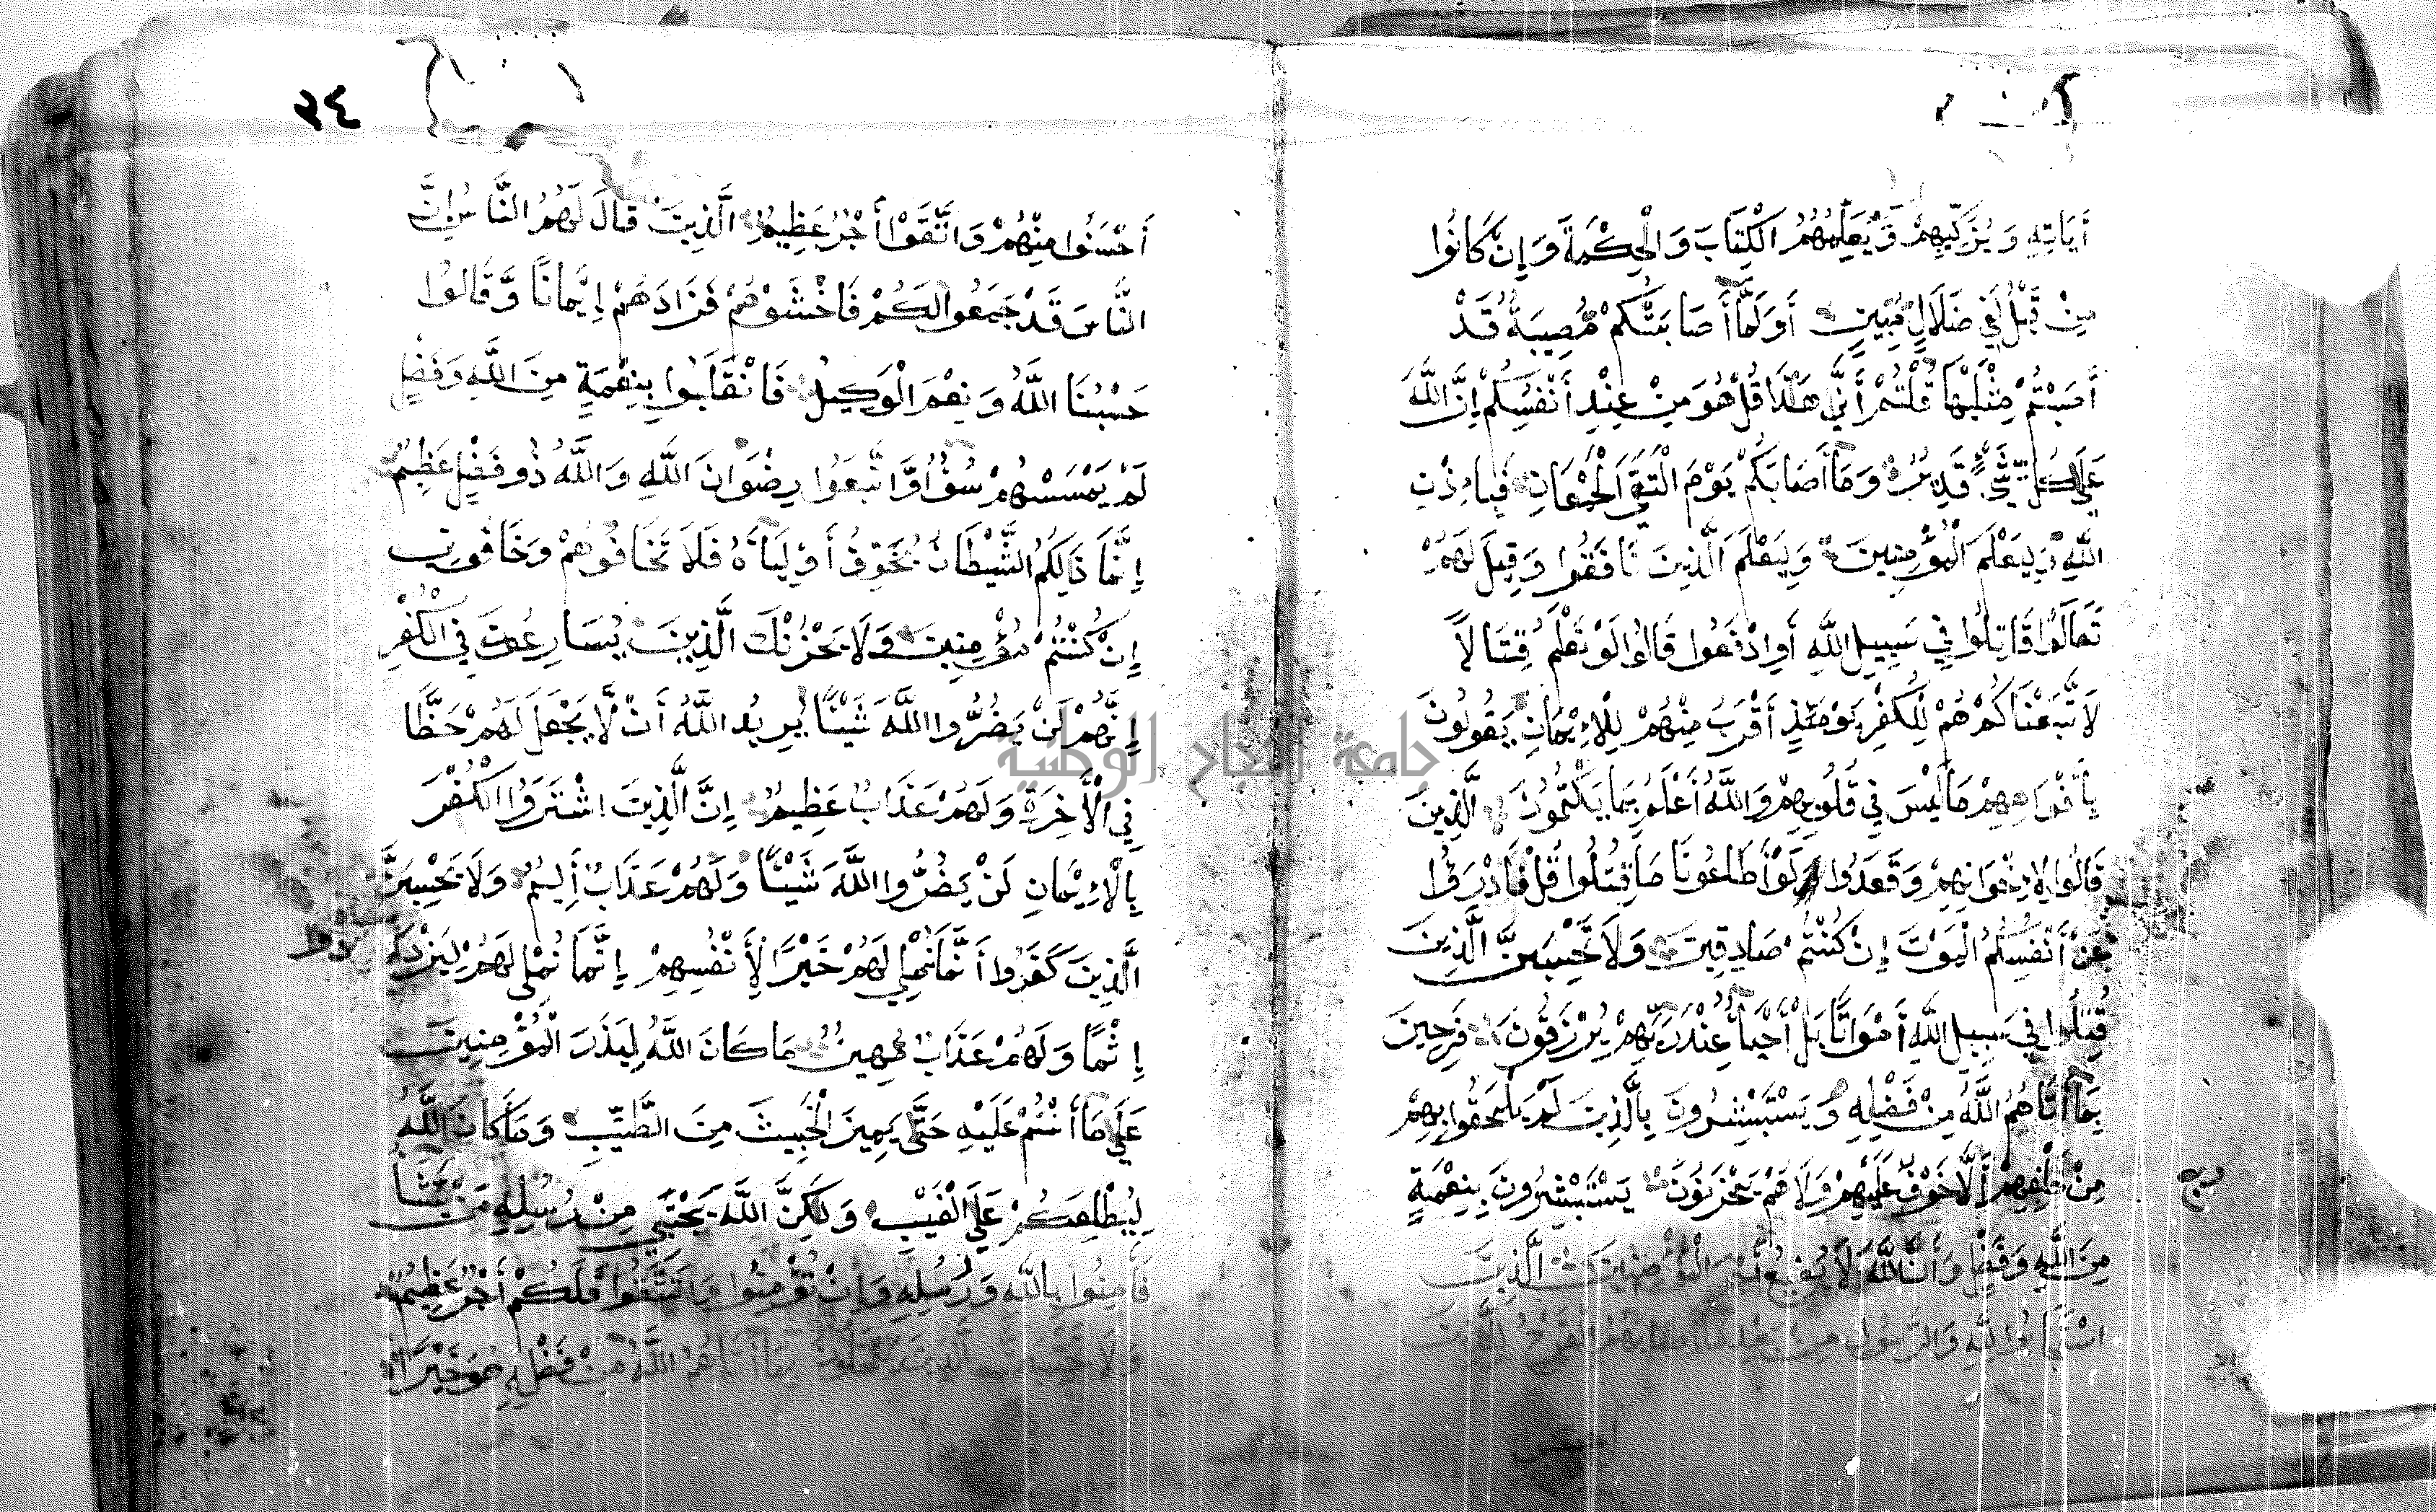 أَيَاتِهِ وَيُزَكِّيهِمْ وَيُعَلِّمُهُمُ الْكِتَابَ وَالْحِكْمَةَ وَإِنْ كَانُوا
مِنْ قَبْلُ لَفِي ضَلَالٍ مُبِينٍ أَوَلَمَّا أَصَابَتْكُمْ مُصِيبَةٌ قَدْ
أَصَبْتُمْ مِثْلَيْهَا قُلْتُمْ أَنَّى هَذَا قُلْ هُوَ مِنْ عِنْدِ أَنْفُسِكُمْ إِنَّ اللَّهَ
عَلَى كُلِّ شَيْءٍ قَدِيرٌ وَمَا أَصَابَكُمْ يَوْمَ الْتَقَى الْجَمْعَانِ فَبِإِذْنِ
اللَّهِ وَلِيَعْلَمَ الْمُؤْمِنِينَ وَلِيَعْلَمَ الَّذِينَ نَافَقُوا وَقِيلَ لَهُمْ
تَعَالَوْا قَاتِلُوا فِي سَبِيلِ اللَّهِ أَوِ ادْفَعُوا قَالُوا لَوْ نَعْلَمُ قِتَالًا
لَاتَّبَعْنَاكُمْ هُمْ لِلْكُفْرِ يَوْمَئِذٍ أَقْرَبُ مِنْهُمْ لِلْإِيْمَانِ يَقُولُونَ
بِأَفْوَاهِهِمْ مَا لَيْسَ فِي قُلُوبِهِمْ وَاللَّهُ أَعْلَمُ بِمَا يَكْتُمُونَ الَّذِينَ
قَالُوا لِإِخْوَانِهِمْ وَقَعَدُوا لَوْ أَطَاعُونَا مَا قُتِلُوا قُلْ فَادْرَءُوا
عَنْ أَنْفُسِكُمُ الْمَوْتَ إِنْ كُنْتُمْ صَادِقِينَ وَلَا تَحْسِبَنَّ الَّذِينَ
قُتِلُوا فِي سَبِيلِ اللَّهِ أَمْوَاتًا بَلْ أَحْيَاءٌ عِنْدَ رَبِّهِمْ يُرْزَقُونَ فَرِحِينَ
بِمَا أَتَاهُمُ اللَّهُ مِنْ فَضْلِهِ وَيَسْتَبْشِرُونَ بِالَّذِينَ لَمْ يَلْحَقُوا بِهِمْ
مِنْ خَلْفِهِمْ أَلَّا خَوْفٌ عَلَيْهِمْ وَلَا هُمْ يَحْزَنُونَ يَسْتَبْشِرُونَ بِنِعْمَةٍ
ربع
مِنَ اللَّهِ وَفَضْلٍ وَأَنَّ اللَّهَ لَا يُضِيعُ أَجْرَ الْمُؤْمِنِينَ الَّذِينَ
اسْتَجَابُوا لِلَّهِ وَالرَّسُولِ مِنْ بَعْدِ مَا أَصَابَهُمُ الْقَرْحُ لِلَّذِينَ
٣٤
أَحْسَنُوا مِنْهُمْ وَاتَّقَوْا أَجْرٌ عَظِيمٌ الَّذِينَ قَالَ لَهُمُ النَّاسُ إِنَّ
النَّاسَ قَدْ جَمَعُوا لَكُمْ فَاخْشَوْهُمْ فَزَادَهُمْ إِيْمَانًا وَّقَالُوا
حَسْبُنَا اللَّهُ وَنِعْمَ الْوَكِيلُ فَانْقَلَبُوا بِنِعْمَةٍ مِنَ اللَّهِ وَفَضْلٍ
لَمْ يَمْسَسْهُمْ سُوْءٌ وَّاتَّبَعُوا رِضْوَانَ اللَّهِ وَاللَّهُ ذُو فَضْلٍ عَظِيمٍ
إِنَّمَا ذَالِكُمُ الشَّيْطَانُ يُخَوِّفُ أَوْلِيَاءَهُ فَلَا تَخَافُوهُمْ وَخَافُونِ
إِنْ كُنْتُمْ مُؤْمِنِينَ وَلَا يَحْزُنْكَ الَّذِينَ يُسَارِعُونَ فِي الْكُفْرِ
إِنَّهُمْ لَنْ يَضُرُّوا اللَّهَ شَيْئًا يُرِيدُ اللَّهُ أَنْ لَّا يَجْعَلَ لَهُمْ حَظًّا
فِي الْأَخِرَةِ وَلَهُمْ عَذَابٌ عَظِيمٌ إِنَّ الَّذِينَ اشْتَرَوُا الْكُفْرَ
بِالْإِيْمَانِ لَنْ يَضُرُّوا اللَّهَ شَيْئًا وَلَهُمْ عَذَابٌ أَلِيمٌ وَلَا يَحْسِبَنَّ
الَّذِينَ كَفَرُوا أَنَّمَا نُمْلِي لَهُمْ خَيْرًا لِأَنْفُسِهِمْ إِنَّمَا نُمْلِي لَهُمْ لِيَزْدَادُوا
إِثْمًا وَلَهُمْ عَذَابٌ مُهِينٌ مَا كَانَ اللَّهُ لِيَذَرَ الْمُؤْمِنِينَ
عَلَى مَا أَنْتُمْ عَلَيْهِ حَتَّى يَمِيزَ الْخَبِيثَ مِنَ الطَّيِّبِ وَمَا كَانَ اللَّهُ
لِيُطْلِعَكُمْ عَلَى الْغَيْبِ وَلَكِنَّ اللَّهَ يَجْتَبِي مِنْ رُسُلِهِ مَنْ يَشَاءُ
فَأَمِنُوا بِاللَّهِ وَرُسُلِهِ وَإِنْ تُؤْمِنُوا وَتَتَّقُوا فَلَكُمْ أَجْرٌ عَظِيمٌ
وَلَا يَحْسِبَنَّ الَّذِينَ يَبْخَلُونَ بِمَا أَتَاهُمُ اللَّهُ مِنْ فَضْلِهِ هُوَ خَيْرًا
جامعة النجاح الوطنية